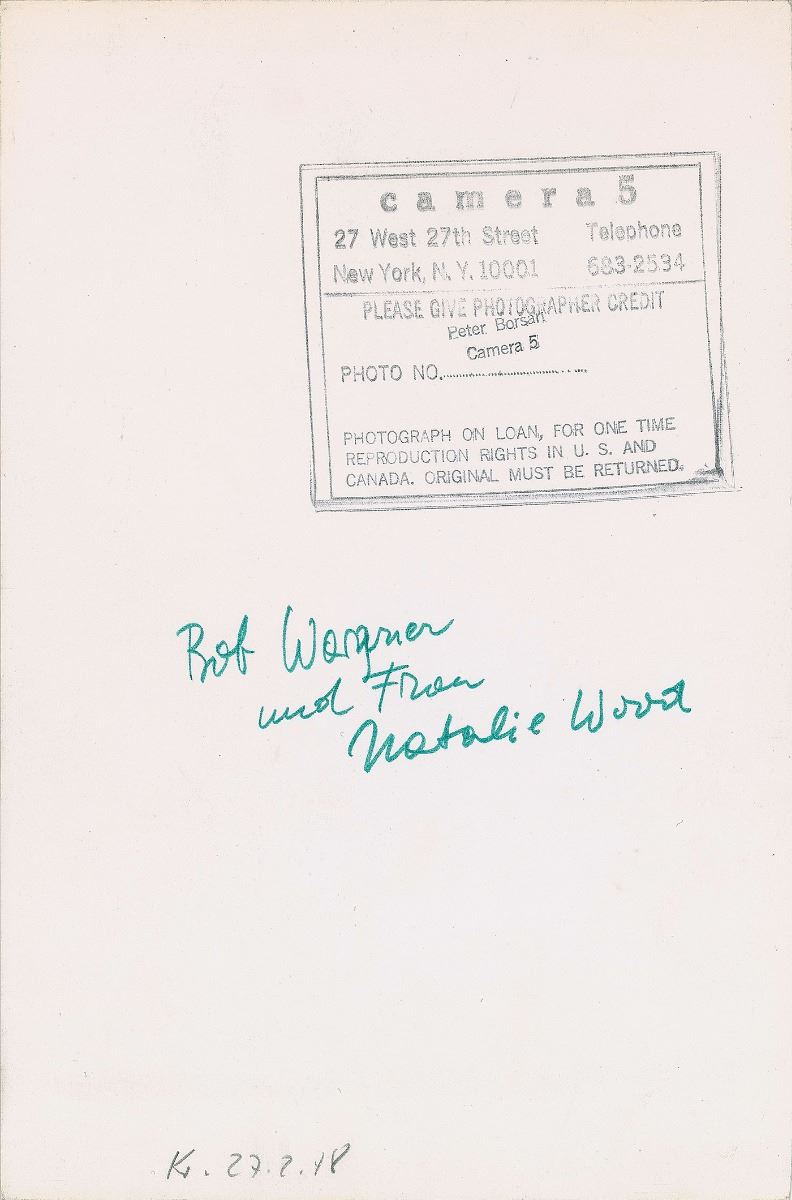 camera 5
27 West 27th Street Telephone
New York, N. Y. 10001 683-2534
PLEASE GIVE PHOTOGRAPHER CREDIT
Peter Borsari
Camera 5
PHOTO NO.
PHOTOGRAPH ON LOAN, FOR ONE TIME
REPRODUCTION RIGHTS IN U. S. AND
CANADA. ORIGINAL MUST BE RETURNED.
Bob Wagner
und Frau
Natalie Wood
Kr. 27.2.18